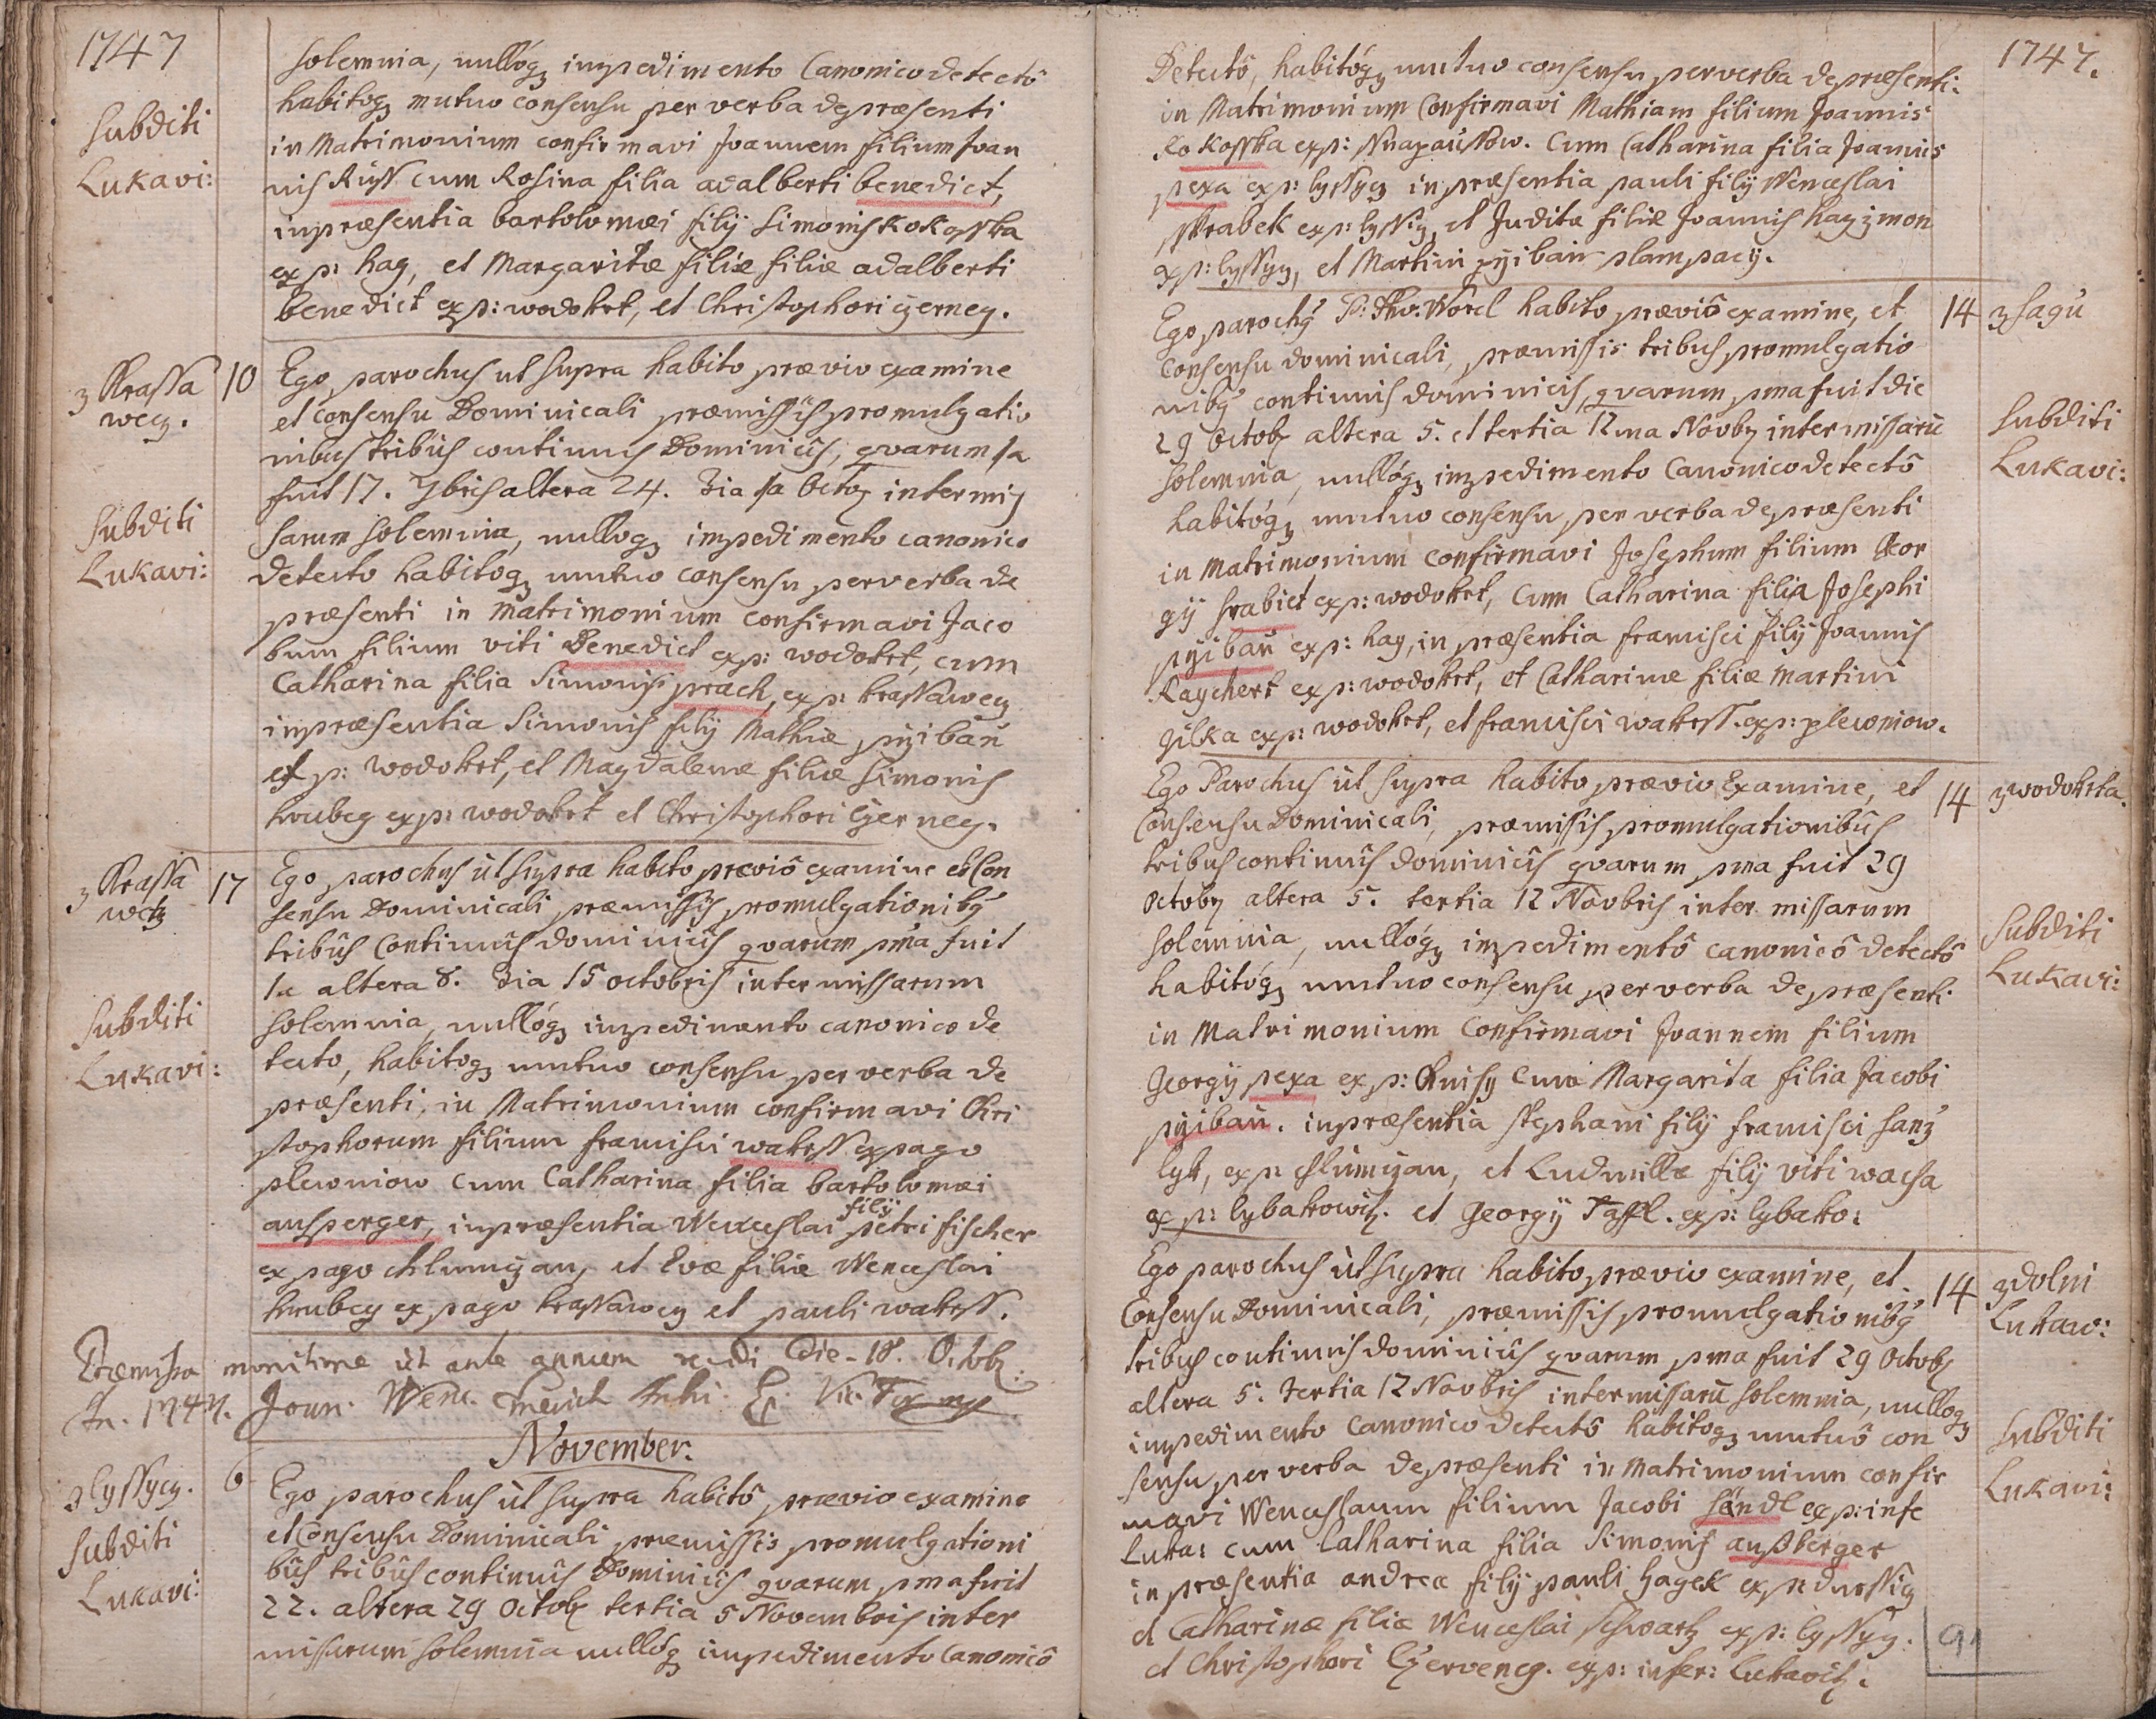 1747
solemnia, nullóq impedimento Canonico detectô
habitoq mutuo consensu per verba de præsenti
Subditi
in Matrimonium confirmavi Joannem filium Joan
Lukavi:
nis Russ cum Rosina filia adalberti benedict,
in præsentia bartolomæi filÿ Simonis Kokosska
ex p: hag, et Margaritæ filiæ filiæ adalberti
benedict ex p: wodokrt, et Christophori czerneg.
z Krassa 10 Ego parochus ut supra habito prævio examine
wecz. et consensu Dominicali præmissis promulgatio
nibus tribus continuis Dominicis, qvarum 1a
fuit 17. 7bris altera 24. 3ia 1a Octo inter mis
Subditi
sarum solemnia, nulloq impedimento canonico
Lukavi:
detecto habitoq mutuo consensu per verba de
præsenti in Matrimonium confirmavi Jaco
bum filium viti Benedict ex p: wodokrt, cum
Catharina filia Simonis prach, ex p: krassawecz
in præsentia Simonis filÿ Mathiæ pziban
ex p: wodokrt, et Magdalenæ filiæ Simonis
hrubey ex p: wodokrt et Christophori Czerney.
z Krassa 17 Ego parochus ut supra habito præviô examine et Con
wetz sensu Dominicali præmissis promulgationibq
tribus Continuis dominicis qvarum pma fuit
1a altera 8. 3ia 15 octobris inter missarum
Subditi
solemnia, nullóq impedimento canonico de
Lukavi:
tecto, habitoq mutuo consensu per verba de
præsenti, in Matrimonium confirmavi Chri
stophorum filium francisci wakrss ex pago
plewniow cum Catharina filia bartolomæi
ansperger, in præsentia Wenceslai filÿ petri fischer
ex pago chlumczan, et Evæ filiæ Wenceslai
hrubey ex pago krassawcz et pauli wakrss.
Præmissa monitione ut ante annum vidi Die 18. Octob:
An. 1747. Joan. Wenc.
November:
z lyssycz. 6 Ego parochus ut supra habitô prævio examine
Subditi et Consensu Dominicali præmissis promulgationi
Lukavi: bus tribus continuis Dominicis qvarum pma fuit
22. altera 29 Octob tertia 5 Novembris inter
missarum solemnia nullóq impedimento Canonicô
1747.
Detectô, habitóq mutuo consensu per verba de præsenti
in Matrimonium Confirmavi Mathiam filium Joannis
Kokosska ex p: Cum Catharina filia Joannis
pexa ex p: lyssycz in præsentia pauli filÿ Wenceslai
Skrabek ex p: lyssycz, et Judita filiæ Joannis hayzmon
ex p: lyssycz, et Martini pziban slampacÿ.
Ego parochq P: Worel habito præviô examine, et 14 z hagu
Consensu dominicali, præmissis tribus promulgatio
nibq continuis dominicis, qvarum pma fuit die
29 Octob altera 5. et tertia 12 ma Novb inter missarū Subditi
solemnia, nullóq impedimento Canonico detectô Lukavi:
habitóq mutuo consensu per verba de præsenti
in Matrimonium Confirmavi Josephum filium Geor
gÿ hrabiet ex p: wodokrt, cum Catharina filia Josephi
pziban ex p: hag, in præsentia francisci filÿ Joannis
Raychert ex p: wodokrt, et Catharinæ filiæ Martini
Jilka ex p: wodokrt, et francisci wakrss. ex p: plewniow.
Ego Parochus ut supra habito prævio Examine, et 14 z wodokrta.
Consensu Dominicali, præmissis promulgationibus
tribus continuis dominicis qvarum pma fuit 29
Octob altera 5. tertia 12 Novbris inter missarum
solemnia, nullóq impedimentô canonicô detectô Subditi
habitóq mutuo consensu per verba de præsenti Lukavi:
in Matrimonium Confirmavi Joannem filium
Georgÿ pexa ex p: Cum Margarita filia Jacobi
pziban. in præsentia stephani filÿ francisci
ex p: chlumczan, et Ludmillæ filÿ viti wacha
ex p: lybakowitz. et Georgÿ Taffl. ex p: lybako:
Ego parochus ut supra habito prævio examine, et 14 z dolni
Consensu Dominicali, præmissis promulgationibq Lukaw:
tribus continuis dominicis qvarum pma fuit 29 Octob
altera 5. tertia 12 Novbris inter missarū solemnia, nulloq
impedimento Canonico detectô habitoq mutuô con Subditi
sensu per verba de præsenti in Matrimonium confir Lukavi:
mavi Wenceslaum filium Jacobi händl ex p: infe
Luka: cum Catharina filia Simonis außberger
in præsentia andreæ filÿ pauli hagek ex p: durssicz
et Catharinæ filiæ Wenceslai Schwartz ex p: lyssycz.
et Christophori Czerveneg. ex p: infer: Lukavitz.
91